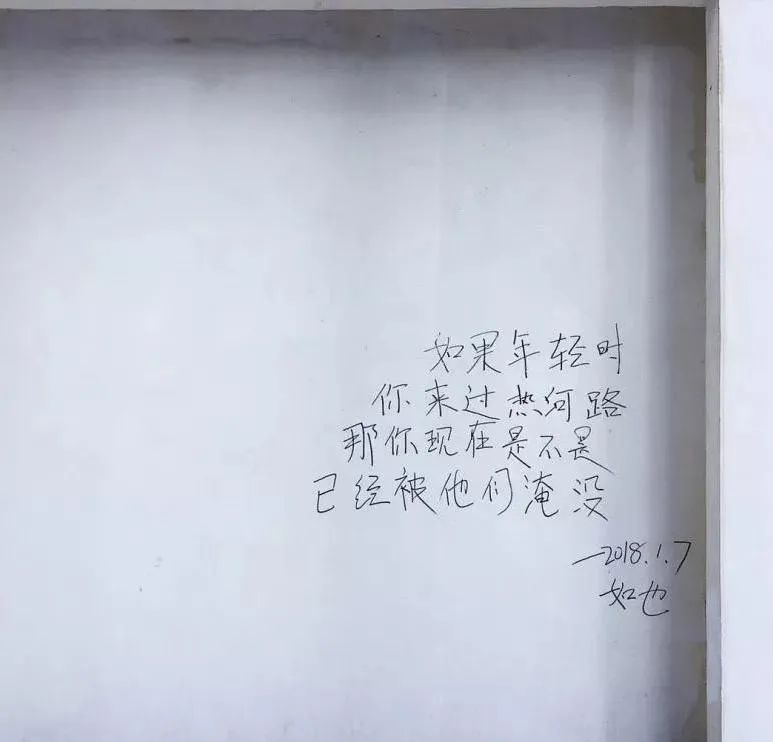 如果年轻时
你来过热河路
那你现在是不是
已经被他们淹没
—2018.1.7
如也